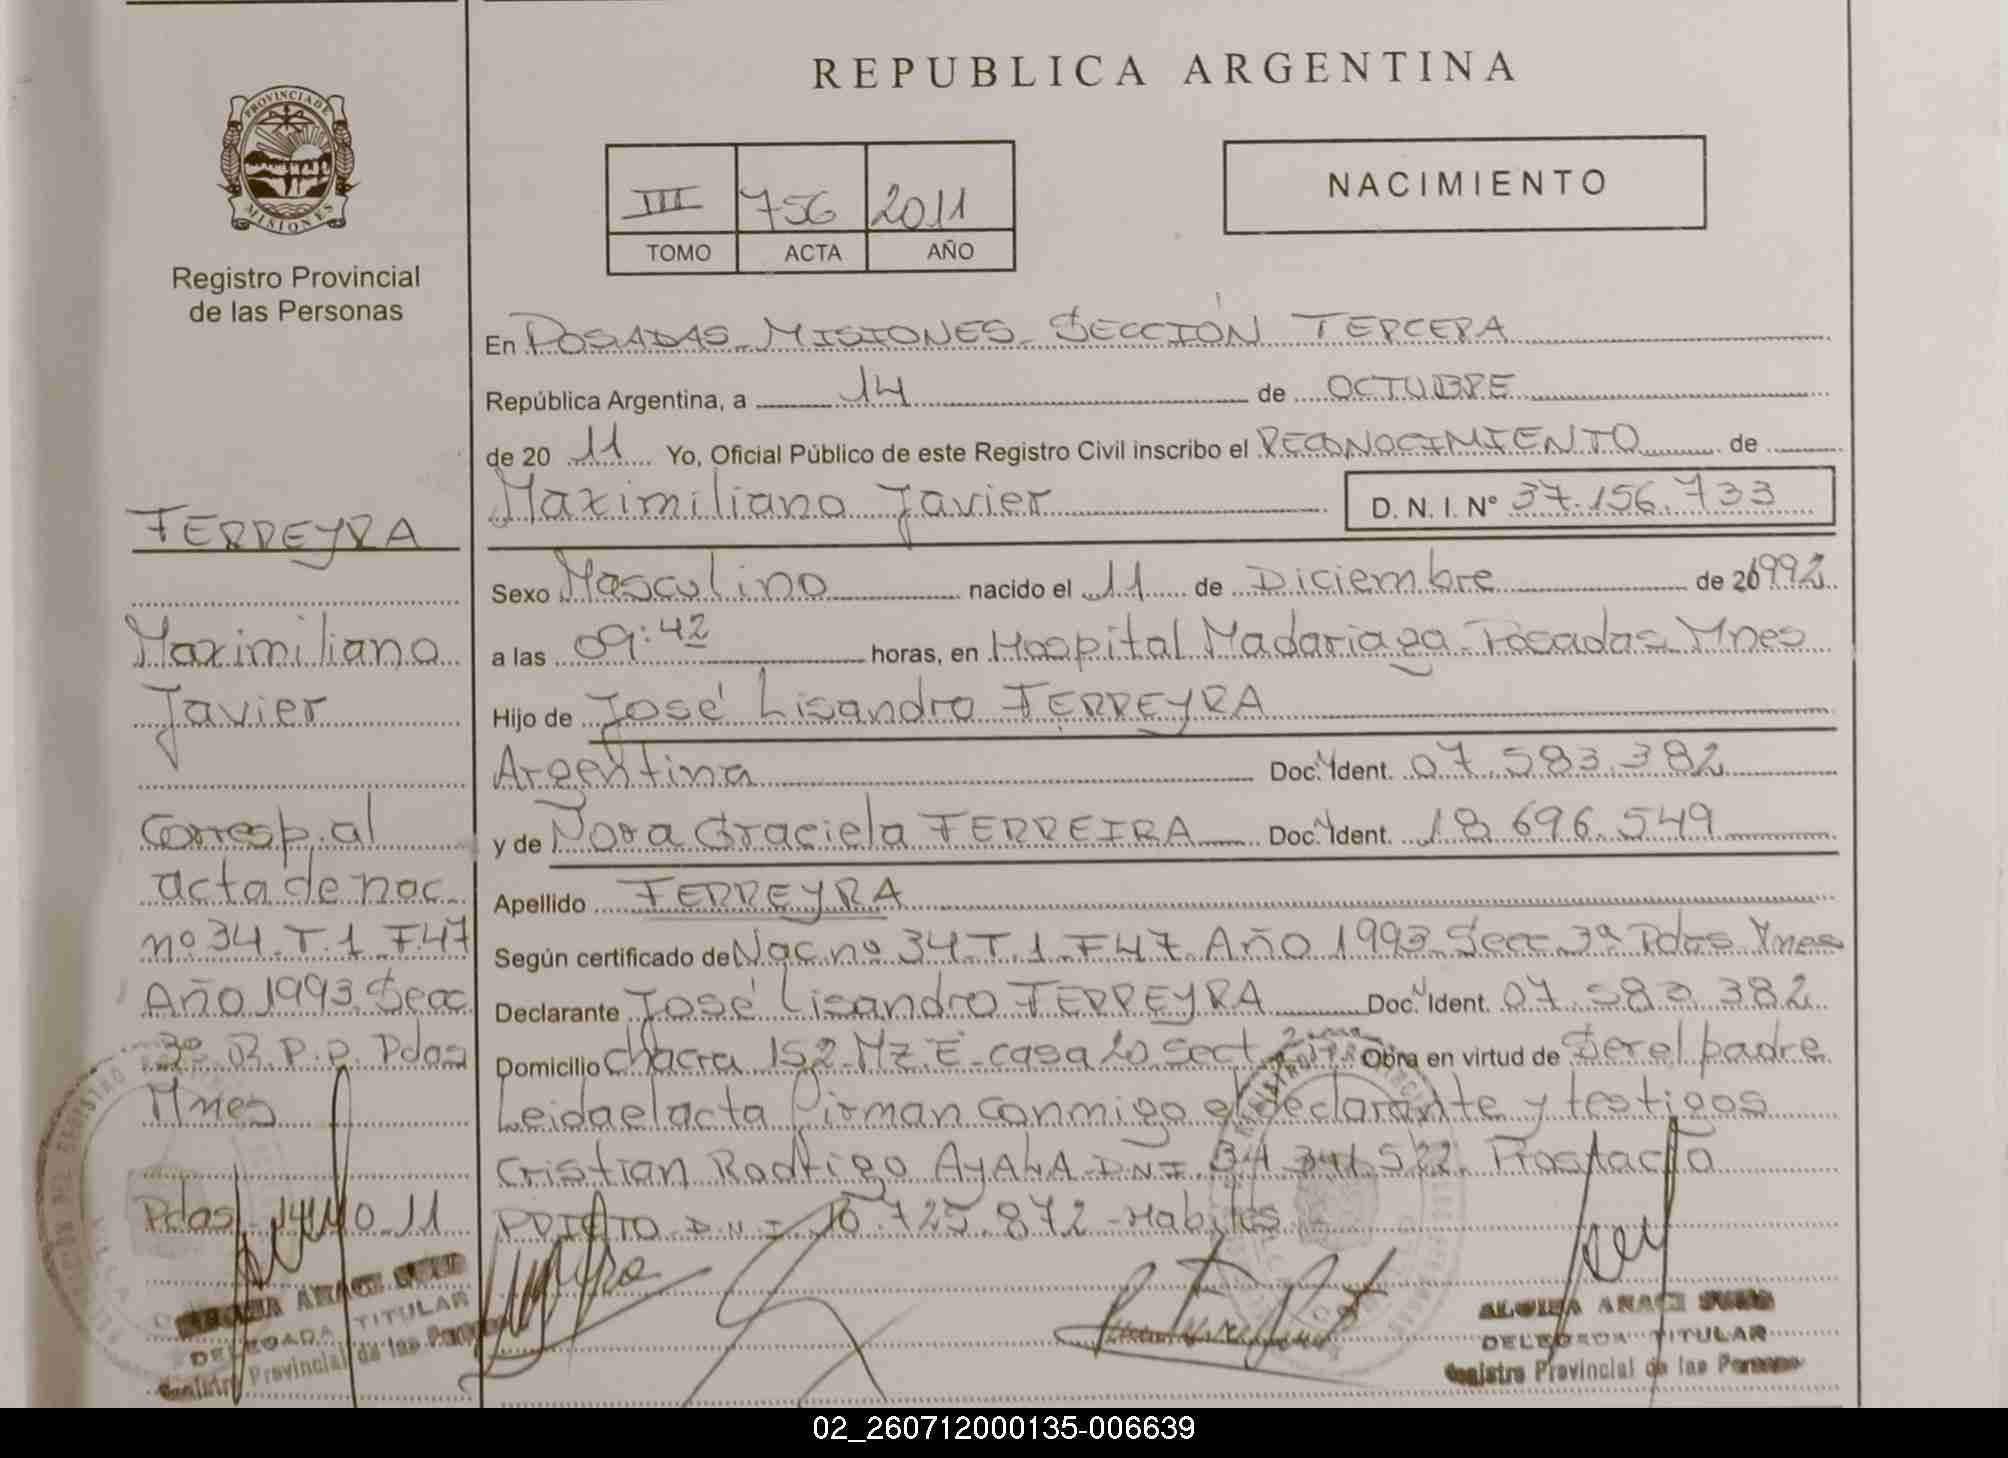 PROVINCIA DE
MISIONES
Registro Provincial
de las Personas
FERREYRA
Maximiliano
Javier
Corresp. al
acta de nac.
nº 34. T. 1. F. 47
Año 1993. Secc.
3º R. P. P. Pdas
Mnes
Pdas, 14.10.11
DELEGADA TITULAR
Registro Provincial de las Personas
REPUBLICA ARGENTINA
III 756 2011
TOMO ACTA AÑO
NACIMIENTO
En POSADAS-MISIONES-SECCIÓN TERCERA
República Argentina, a 14 de OCTUBRE
de 20 11 Yo, Oficial Público de este Registro Civil inscribo el RECONOCIMIENTO de
Maximiliano Javier D. N. I. Nº 37.156.733
Sexo Masculino nacido el 11 de Diciembre de 1992
a las 09:42 horas, en Hospital Madariaga-Posadas Mnes
Hijo de José Lisandro FERREYRA
Argentina Doc. Ident. 07.583.382
y de Nora Graciela FERREIRA Doc. Ident. 18.696.549
Apellido FERREYRA
Según certificado de Nac. nº 34 T. 1. F 47. Año 1993. Secc. 3ª Pdas Mnes
Declarante José Lisandro FERREYRA Doc. Ident. 07.583.382
Domicilio Chacra 152-Mz. E-casa 20 sect Obra en virtud de Ser el padre
Leida el acta firman conmigo el declarante y testigos
Cristian Rodrigo AYALA D.N.I. 34.341.522.
PRIETO D.N.I. 10.725.872-Habiles
DELEGADA TITULAR
Registro Provincial de las Personas
02_260712000135-006639